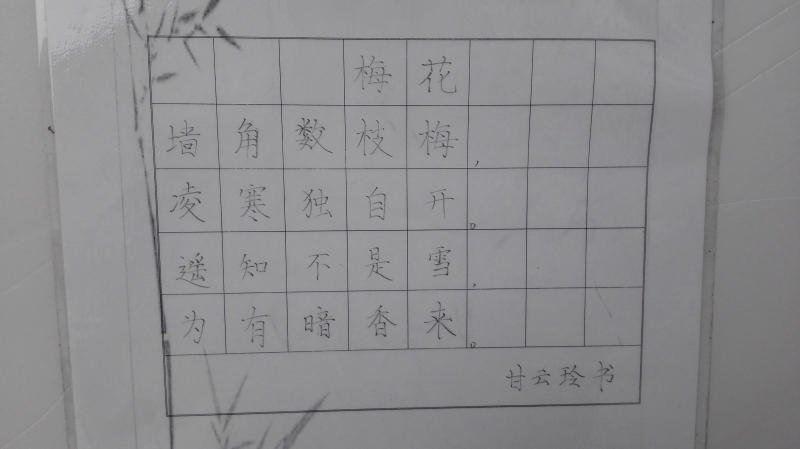 梅花
墙角数枝梅，
凌寒独自开。
遥知不是雪，
为有暗香来。
甘云玲书